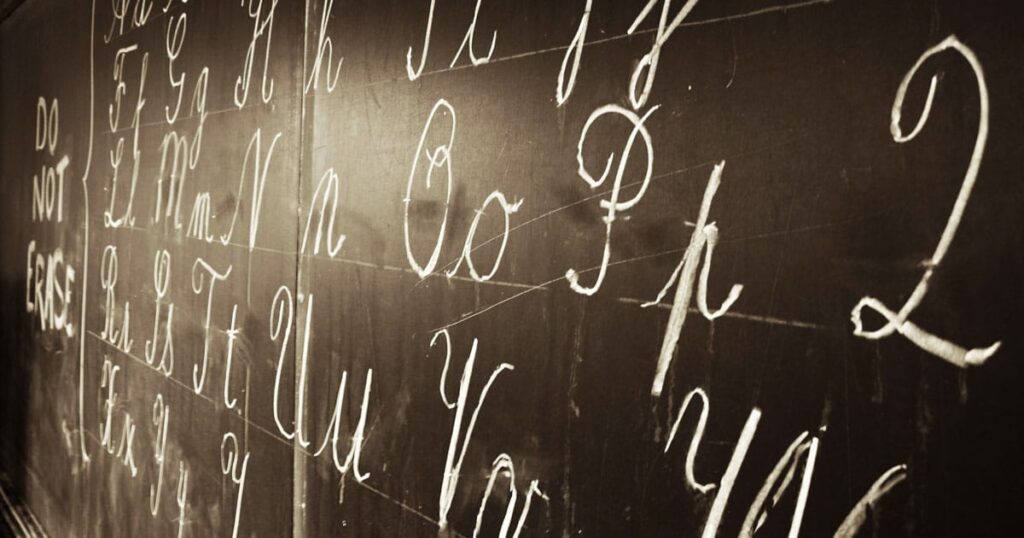 DO
NOT
ERASE
Ff Gg Hh Ii Jj
Ll Mm Nn Oo Pp Q
Rr Ss Tt Uu Vv W
Xx Yy